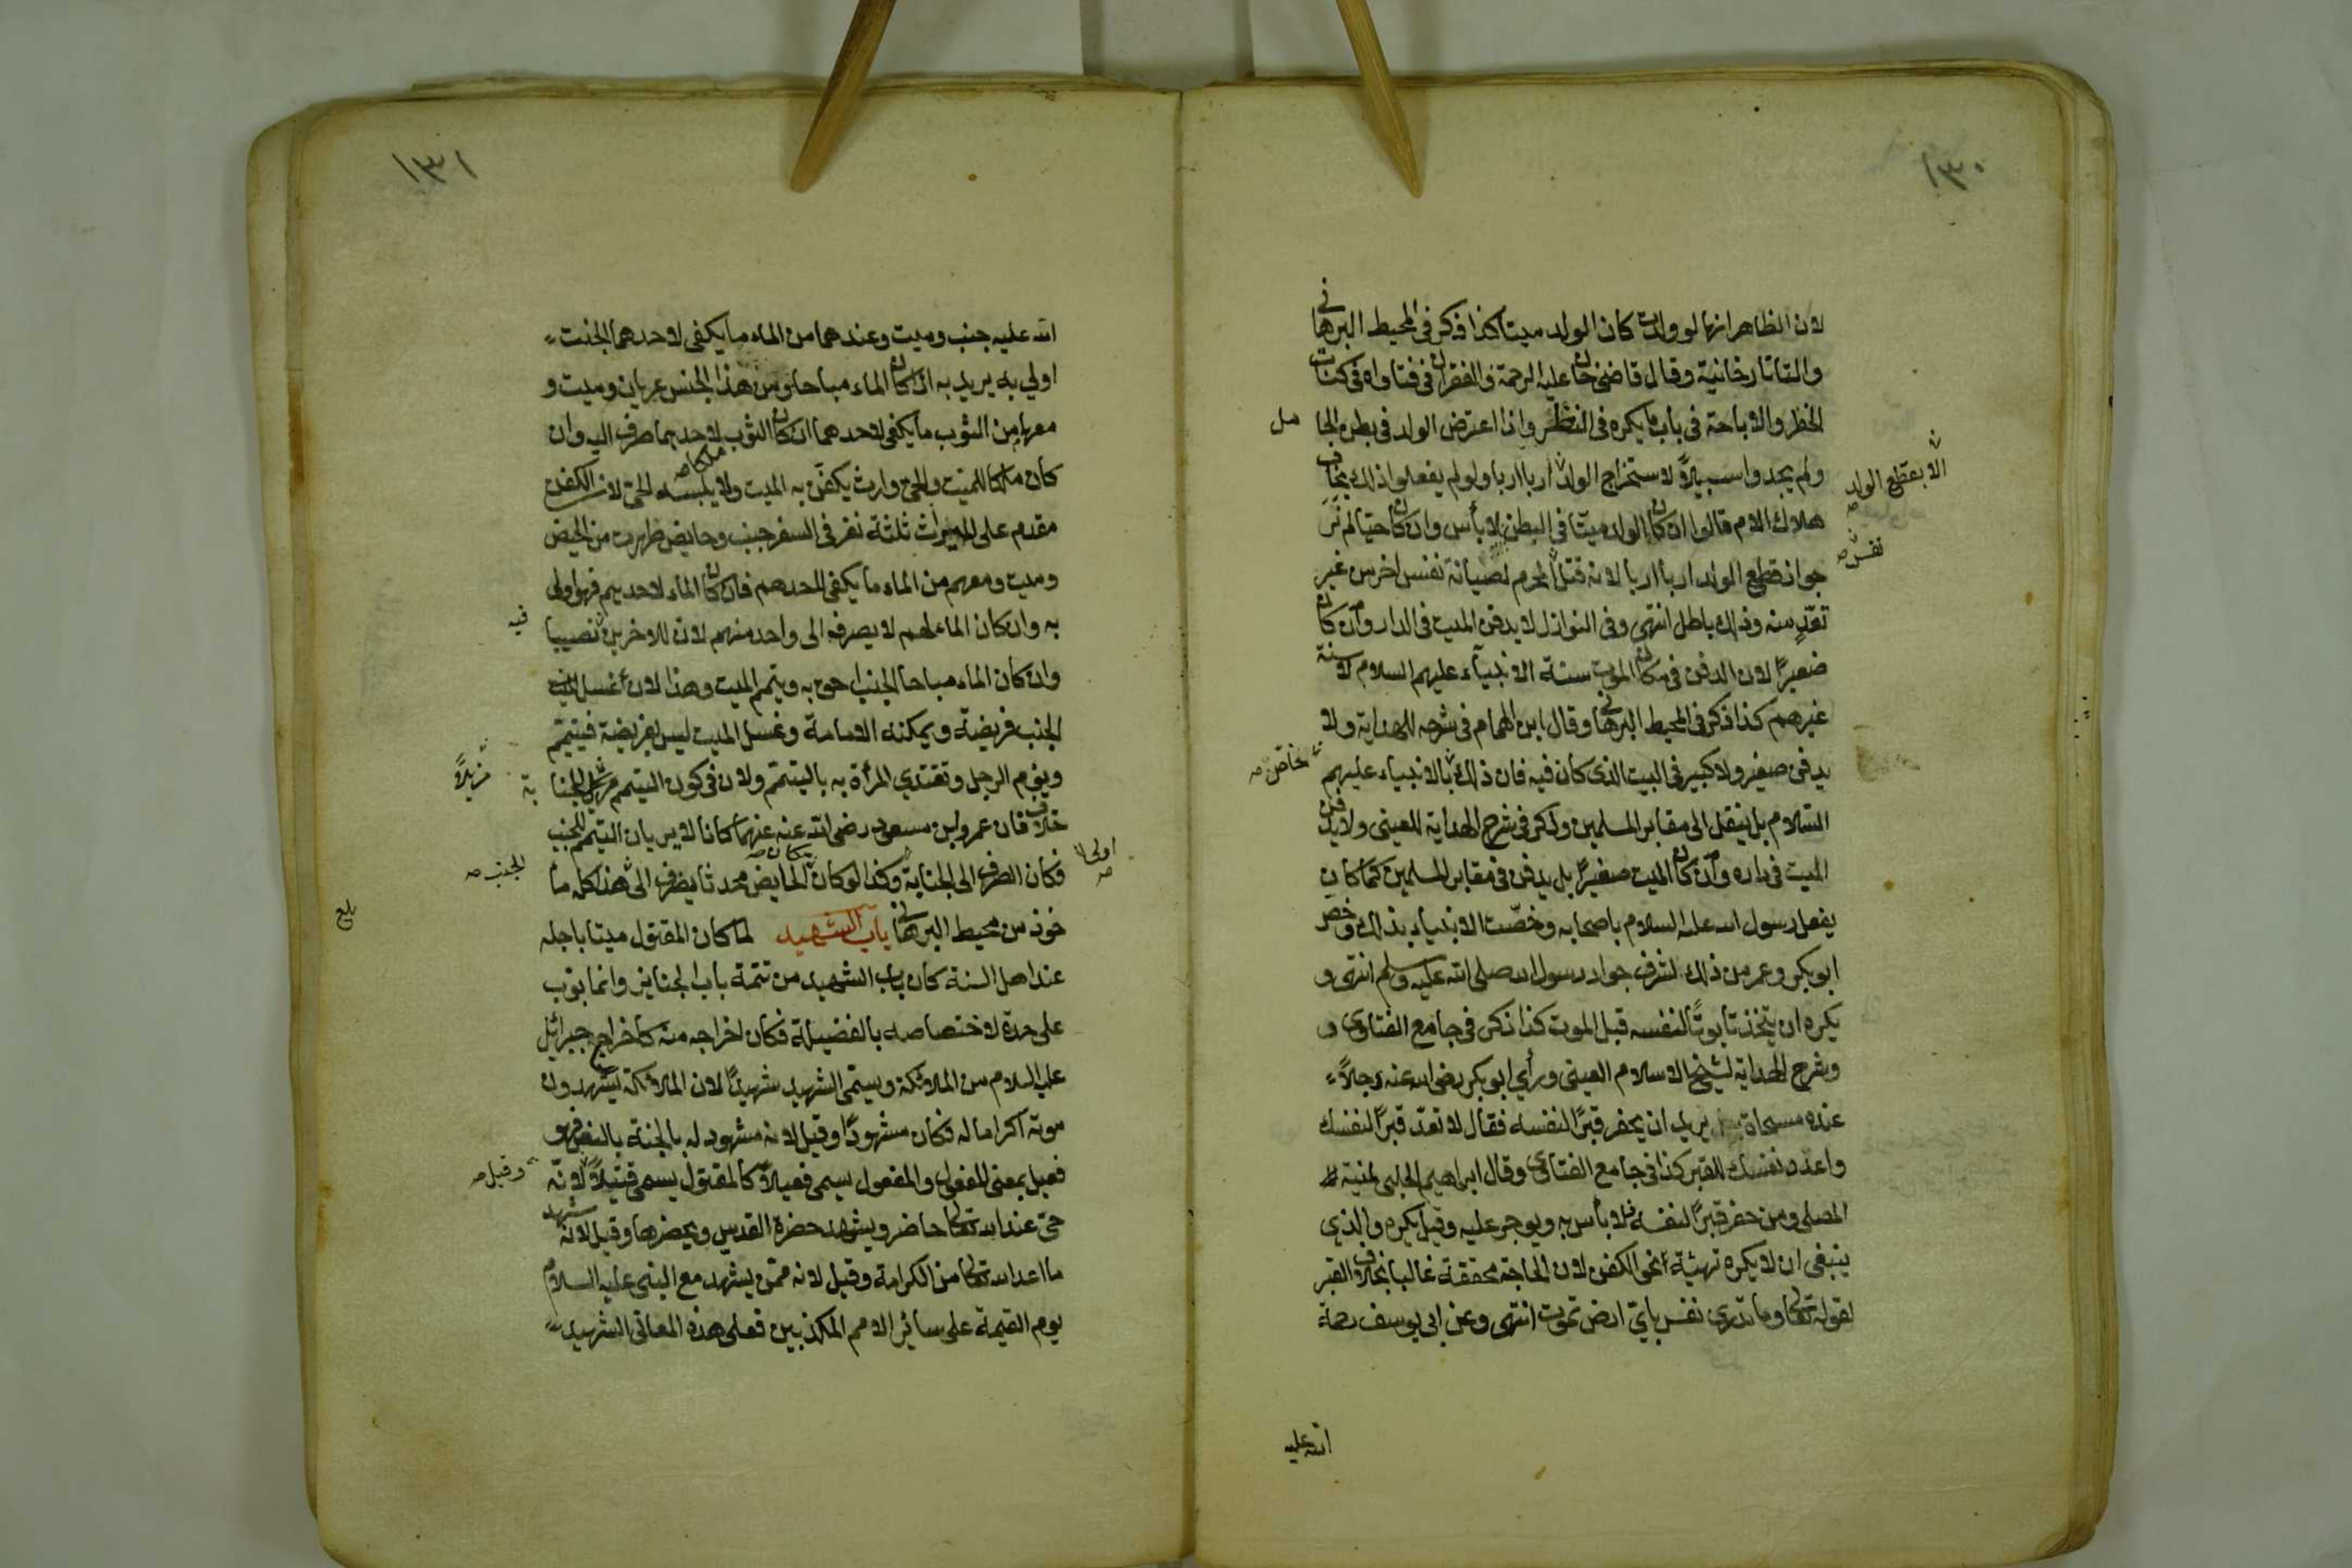 ١٣٠
لان الظاهر انها لو ولدت كان الولد ميتا كذا ذكر في المحيط البرهاني
والتاتارخانية وقال قاضيخان عليه الرحمة والغفران في فتاواه في كتاب
الحظر والاباحة في باب ما يكره في النظر واذا اعترض الولد في بطن الحا
مل
ولم يجدوا سبيلاً لاستخراج الولد اربا اربا ولو لم يفعلوا ذلك يخاف
الا بقطع الولد صه
هلاك الام قالوا ان كان الولد ميتا في البطن لا بأس وان كان حيا لم نر
جواز قطع الولد اربا اربا لانه قتل المحرم لصيانة نفس اخر من غير
نفس صه
تعد منه وذلك باطل انتهى وفي النوازل لا يدفن الميت في الدار وان كان
صغيرًا لان الدفن في مكان الموت سنة الانبياء عليهم السلام لا سنة
غيرهم كذا ذكر في المحيط البرهاني وقال ابن الهمام في شرحه للهداية ولا
يدفن صغير ولا كبير في البيت الذي كان فيه فان ذلك بالانبياء عليهم
خاص صه
السلام بل ينقل الى مقابر المسلمين وذكر في شرح الهداية للعيني ولا يدفن
الميت في داره وان كان الميت صغيرًا بل يدفن في مقابر المسلمين كما كان
يفعل رسول الله عليه السلام باصحابه وخصّت الانبياء بذلك وخص
ابو بكر وعمر من ذلك لشرف جوار رسول الله صلى الله عليه وسلم انتهى و
يكره ان يتخذ تابوتًا لنفسه قبل الموت كذا ذكر في جامع الفتاوى و
وشرح الهداية لشيخ الاسلام العيني ورأي ابو بكر رضى الله عنه رجلاً
عنده مسحاة يريد ان يحفر قبرًا لنفسه فقال لا تعدّ قبرًا لنفسك
واعدد نفسك للقبر كذا في جامع الفتاوى وقال ابراهيم الحلبي لمنية
المصلى ومن حفر قبرًا لنفسه فلا بأس به ويوجر عليه وقيل يكره والذي
ينبغي ان لا يكره تهيئة نحو الكفن لان الحاجة محققة غالبا بخلاف القبر
لقوله تعالى وما تدرى نفس باى ارض تموت انتهى وعن ابي يوسف رحمة
الله عليه
١٣١
الله عليه جنب وميت وعندهما من الماء ما يكفي لاحدهما الجنب
اولى به يريد به ان كان الماء مباحا ومن هذا الجنس عريان وميت و
معهما من الثوب ما يكفي لاحدهما ان كان الثوب لاحدهما صرف اليه وان
كان ملكا للميت والحي وارث يكفن به الميت ولا يلبسه الحي لان الكفن
مقدم على الميراث ثلثة نفر في السفر جنب وحايض طهرت من الحيض
وميت ومعهم من الماء ما يكفي لاحدهم فان كان الماء لاحديهم فهو اولى
به وان كان الماء لهم لا يصرف الى واحد منهم لان للاخرين نصيبا
فيه
وان كان الماء مباحا الجنب احق به ويتيمم الميت وهذا لان غسل
الجنب فريضة ويمكنه الامامة وغسل الميت ليس بفريضة فيتيمم
ويؤم الرجل وتقتدي المرأة به بالتيمم ولان في كون التيمم مزيلا للجنا
بة
مزيلاً
خلاف فان عمر وابن مسعود رضى الله عنه عنهما كانا لا يريان التيمم للجنب
فكان الصرف الى الجنابة وكذا لو كان مكان الحايض محدثا يصرف الى هذا كله مأ
اولى صه
الجنب صه
خوذ من محيط البرهاني باب الشهيد لما كان المقتول ميتا باجله
بلغ
عند اهل السنة كان باب الشهيد من تتمة باب الجنايز وانما بوّب
على حدة لاختصاصه بالفضيلة فكان اخراجه منه كاخراج جبرائيل
عليه السلام من الملائكة ويسمّى الشهيد شهيدًا لان الملائكة يشهدون
موته اكراما له فكان مشهودًا وقيل لانه مشهود له بالجنة بالنص فهو
فعيل بمعنى المفعول والمفعول يسمى فعيلاً كالمقتول يسمى قتيلاً لانّه
وقيل صه
حيّ عند الله تعالى حاضر ويشهد حضرة القدس ويحضرها وقيل لانه شهد
ما اعد الله تعالى من الكرامة وقيل لانه ممّن يشهد مع النبي عليه السلام
يوم القيمة على سائر الامم المكذبين فعلى هذه المعاني الشهيد